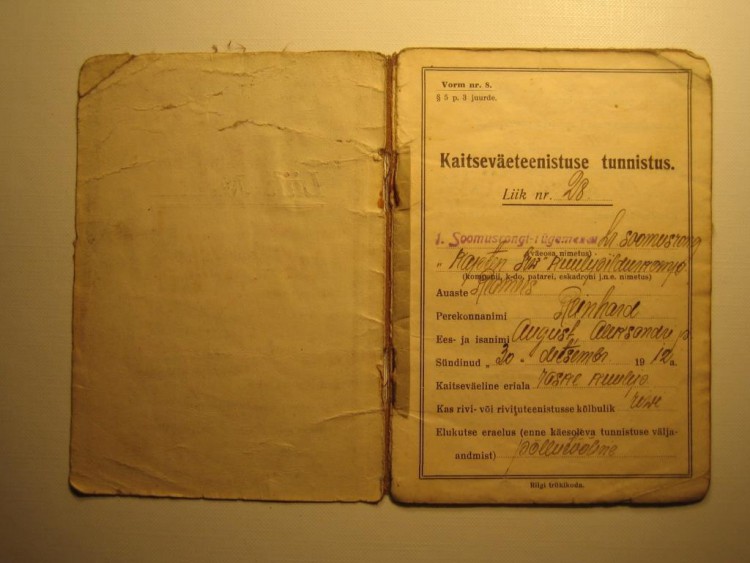 Vorm nr. 8.
§ 5 p. 3 juurde.
Kaitseväeteenistuse tunnistus.
Liik nr. 28.
1. Soomusrongi-rügemendi soomusrong
(väeosa nimetus)
"Kapten Irv"
(kompanii, k-do, patarei, eskadroni j.n.e. nimetus)
Auaste
Perekonnanimi Reinhard
Ees- ja isanimi August, Aleksandri p.
Sündinud „30. detsembr 1912 a.
Kaitseväeline eriala
Kas rivi- või rivituteenistusse kõlbulik
Elukutse eraelus (enne käesoleva tunnistuse välja-
andmist) põllutööline
Riigi trükikoda.